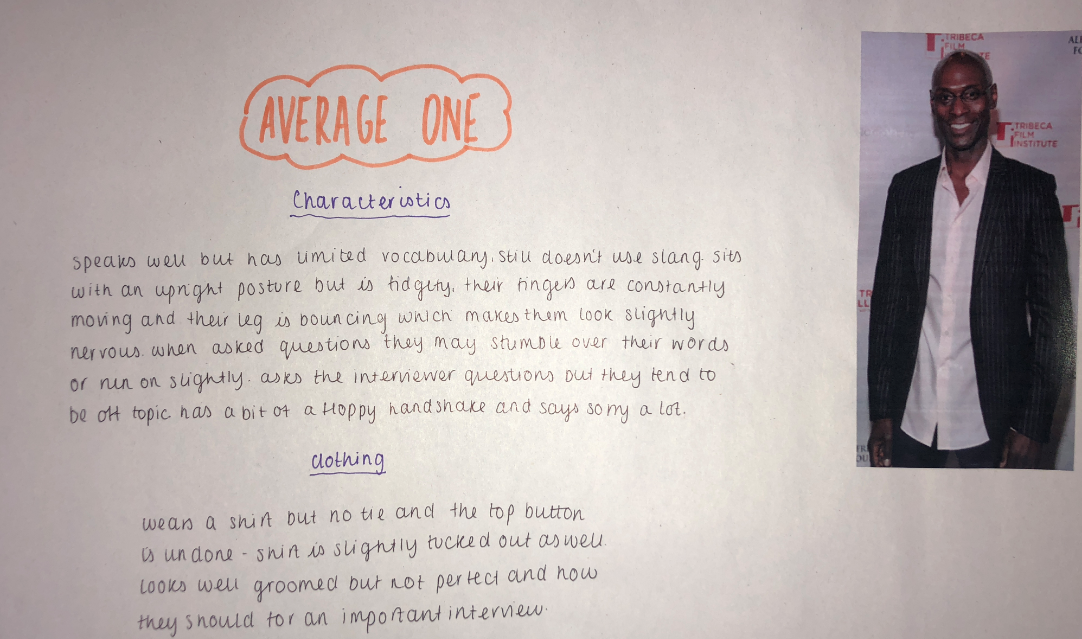 AVERAGE ONE
Characteristics
speaks well but has limited vocabulary. Still doesn't use slang. sits
with an upright posture but is fidgety. their fingers are constantly
moving and their leg is bouncing which makes them look slightly
nervous. when asked questions they may stumble over their words
or run on slightly. asks the interviewer questions but they tend to
be off topic. has a bit of a floppy handshake and says sorry a lot.
clothing
wears a shirt but no tie and the top button
is undone - shirt is slightly tucked out as well.
Looks well groomed but not perfect and how
they should for an important interview.
TRIBECA
FILM
INSTITUTE
TRIBECA
FILM
INSTITUTE